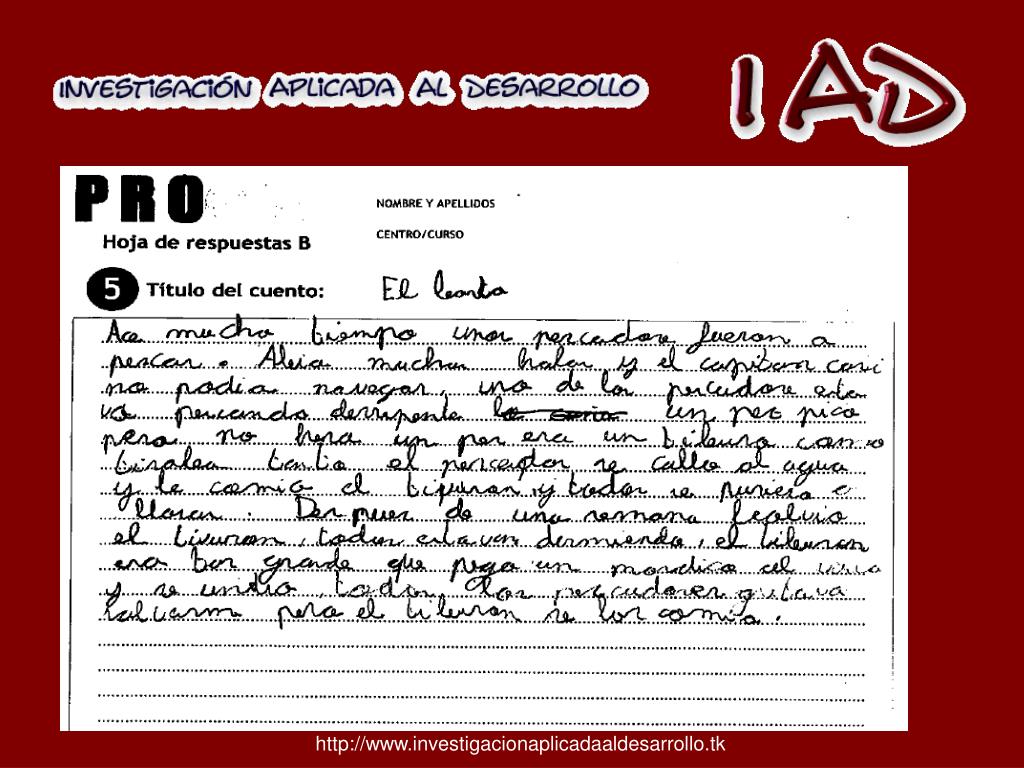 INVESTIGACIÓN APLICADA AL DESARROLLO
IAD
PRO
NOMBRE Y APELLIDOS
Hoja de respuestas B
CENTRO/CURSO
5 Título del cuento: El
Ace mucho tiempo unos pescadore fueron a
pescar. Avia muchas holas y el capitan casi
no podia navegar, uno de los pescadore esta
va pescando derrepente un pez pico
pero no hera un pez era un tiburo como
tanto el pescador se callo al agua
y le comio el tiburon y todos se pusiero a
llorar. Despues de una semana
el tivuron, todos estavan dormiendo, el tiburon
era tan grande que pego un mordisco al
y se undio, todos los pescadores gritava
salvarm pero el tiburon se los comio.
http://www.investigacionaplicadaaldesarrollo.tk